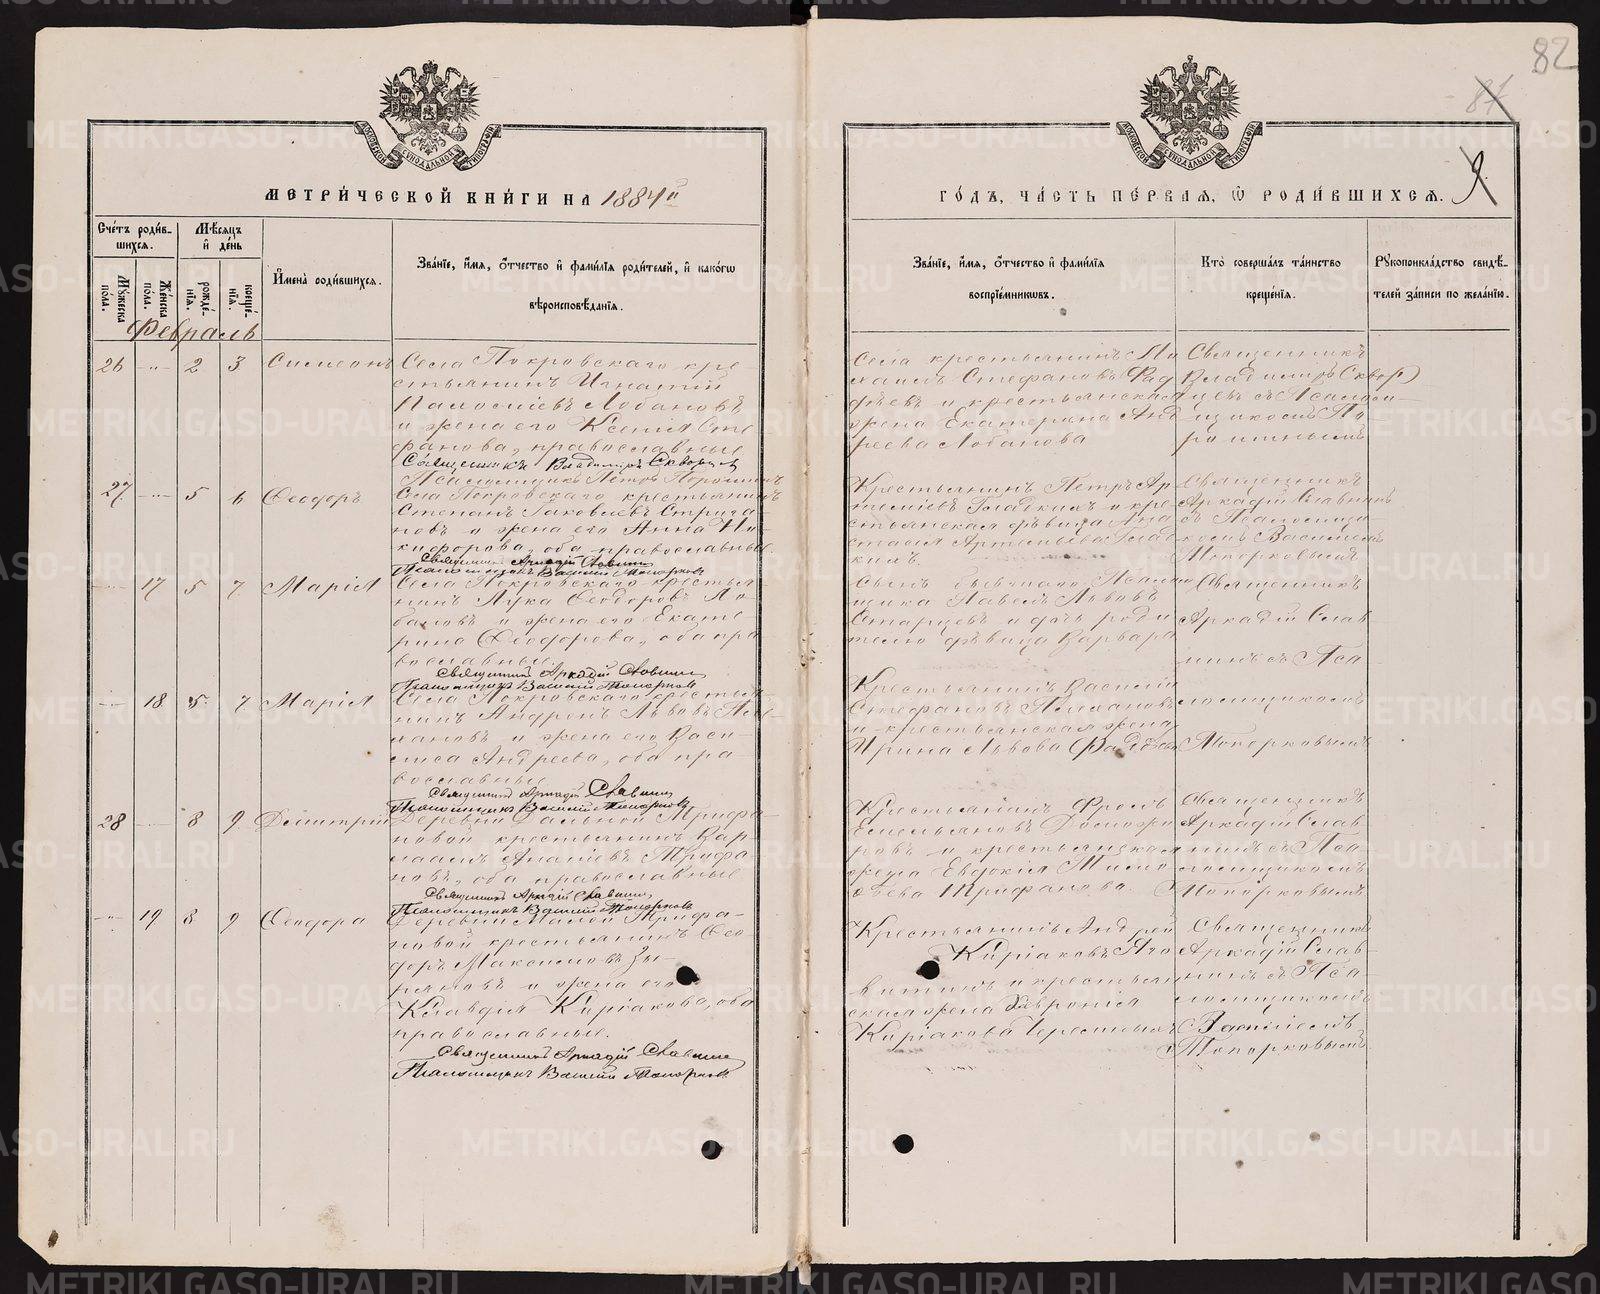 82
87
9
МЕТРИ́ЧЕСКОЙ КНИ́ГИ НА 1884 й
ГО́ДЪ, ЧА́СТЬ ПЕ́РВАЯ, Ѽ РОДИ́ВШИХСЯ.
Сче́тъ роди́в-
шихся.
Мѣ́сяцъ
и҆ де́нь
Мꙋ́жеска
по́ла.
Же́нска
по́ла.
рожде́-
нїѧ.
креще́-
нїѧ.
И҆мена̀ роди́вшихся.
Зва́нїе, и҆́мѧ, ѻ҆́тчество и҆ фами́лїѧ роди́телей, и҆ како́гѡ
вѣроисповѣ́данїѧ.
Зва́нїе, и҆́мѧ, ѻ҆́тчество и҆ фами́лїѧ
воспрїе́мниковъ.
Кто̀ соверша́лъ та́инство
креще́нїѧ.
Рꙋкоприкла́дство свидѣ́-
телей за́писи по жела́нїю.
Февраль
26 -"- 2 3 Симеонъ
Села Покровскаго кре-
стьянинъ Игнатій
Лобановъ
и жена его Ксенія Сте
фанова, православные
Священникъ Владимиръ Скворцов
Псаломщикъ Петръ
Села крестьянинъ Ми
хаилъ Стефановъ Фад
ѣевъ и крестьянская
жена Екатерина Анд
реева Лобанова
Священникъ
Владимиръ Сквор
цевъ съ Псалом-
щикомъ
27 -"- 5 6 Ѳеодоръ
Села Покровскаго крестьянинъ
Степанъ Іаковлевъ Стрига
новъ и жена его Анна Ни-
кифорова, оба православные.
Священникъ Аркадій Славнинъ
Псаломщикъ Василій Топорковъ
Крестьянинъ Петръ Ар
теміевъ Гладкихъ и кре
стьянская дѣвица Ана
стасія Артемьева Глад
кихъ.
Священникъ
Аркадій Славнинъ
съ Псаломщи-
комъ Василіемъ
Топорковымъ
-"- 17 5 7 Марія
Села Покровскаго крестья
нинъ Лука Ѳеодоровъ Ло-
бановъ и жена его Екате-
рина Ѳеодорова, оба пра
вославные.
Священникъ Аркадій Славнинъ
Псаломщикъ Василій Топорковъ
Сынъ Псалом
щика Павелъ Львовъ
Старцевъ и дочь
дѣвица Варвара
Священникъ
Аркадій Слав
нинъ съ Пса-
ломщикомъ
Топорковымъ
-"- 18 5 7 Марія
Села Покровскаго крестья
нинъ Андрей Львовъ
и жена его Васи-
лиса Андреева, оба пра-
вославные
Священникъ Аркадій Славнинъ
Псаломщикъ Василій Топорковъ
Крестьянинъ Василій
Стефановъ
и крестьянская жена
Ирина Львова Фаддѣева
28 8 9 Димитрій
Деревни Дальной Трифа-
новой крестьянинъ Вар-
лаамъ Ананіевъ Трифа-
новъ, оба православные
Священникъ Аркадій Славнинъ
Псаломщикъ Василій Топорковъ
Крестьянинъ Фролъ
Емельяновъ
и крестьянская
жена Евдокія
Трифанова.
Священникъ
Аркадій Слав
нинъ съ Пса-
ломщикомъ
Топорковымъ
-"- 19 8 9 Ѳеодора
Деревни Малой Трифа-
новой крестьянинъ Ѳео-
доръ Максимовъ Зы-
ряновъ и жена его
Клавдія Киріакова, оба
православные.
Священникъ Аркадій Славнинъ
Псаломщикъ Василій Топорковъ
Крестьянинъ Андрей
Киріаковъ
и крестьян
ская жена Хавронія
Киріакова
Священникъ
Аркадій Слав-
нинъ съ Пса-
ломщикомъ
Василіемъ
Топорковымъ
METRIKI.GASO-URAL.RU